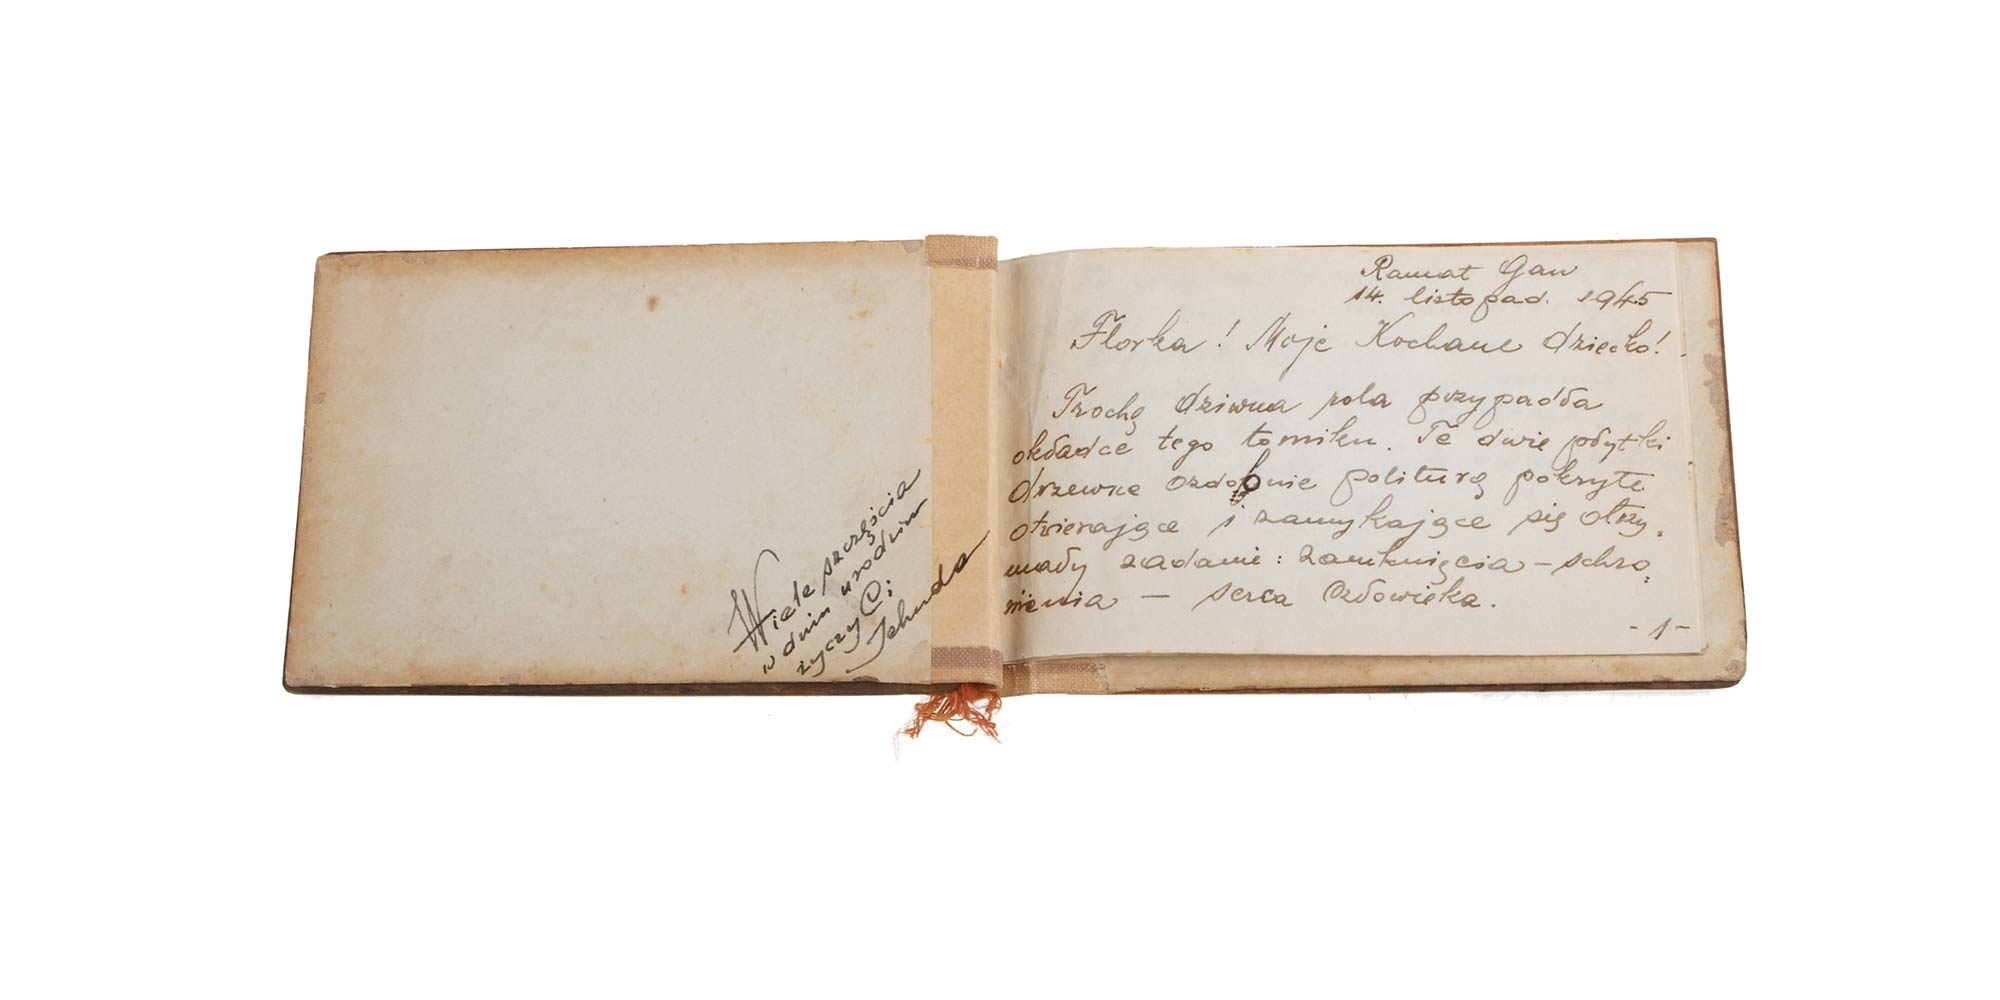 Wiele szczęścia
w dniu urodzin
życzy Ci
Jehuda
Ramat Gan
14. listopad. 1945
Florka! Moje Kochane dziecko!
Trochę dziwna rola przypadła
okładce tego tomiku. Te dwie płytki
drzewne ozdobnie politurą pokryte
otwierające i zamykające się otrzy-
mały zadanie: zamknięcia – schro-
nienia – serca Człowieka.
- 1 -